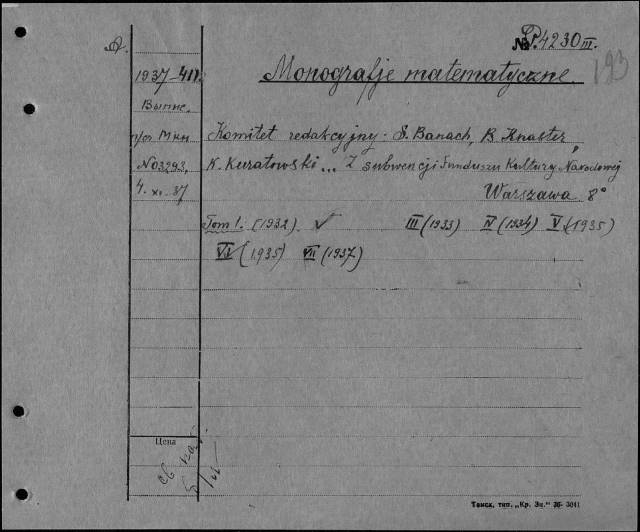 № P. 4230 III.
193
1937-411.
Monografje matematyczne.
Выпис.
Komitet redakcyjny. S. Banach, B. Knaster,
№03293. K. Kuratowski... Z subwencji Funduszu Kultury Narodowej
4. XI. 37 Warszawa 8°
Tom I. (1932) ✓ III (1933) IV (1934) V (1935)
VI (1935) VII (1937)
Цена
Томск, тип. „Кр. Зн." 36- 3041